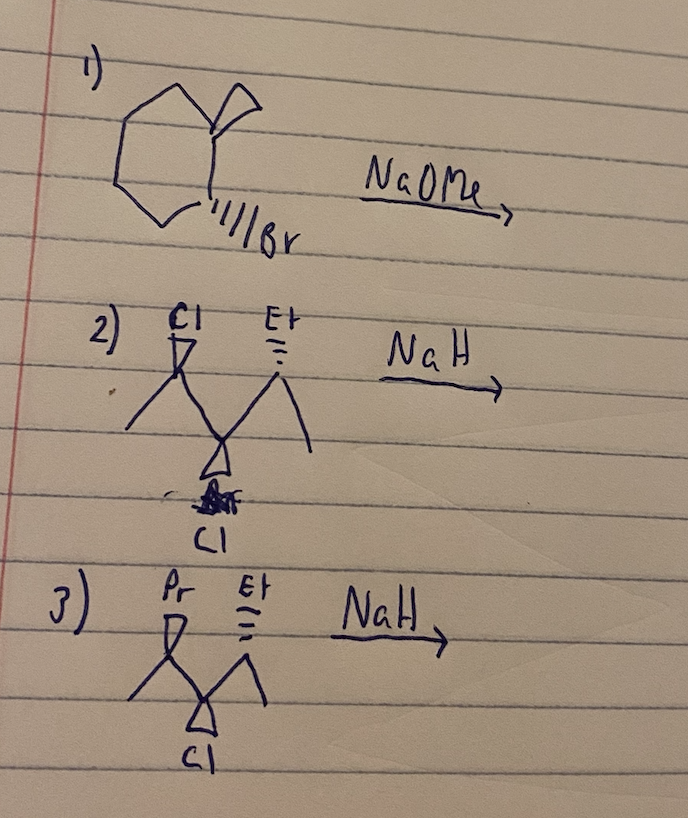 1)
NaOMe
Br
2)
Cl
Et
NaH
Cl
3)
Pr
Et
NaH
Cl